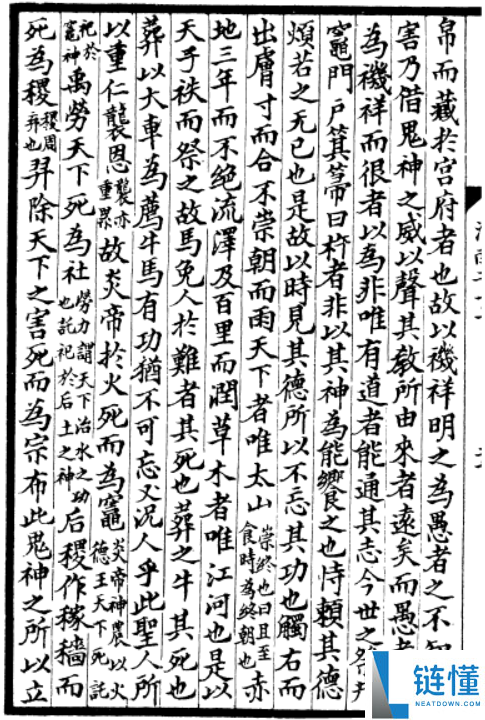 帛而藏於宫府者也故以禨祥明之為愚者之不知
害乃借鬼神之威以聲其教所由來者遠矣而愚者
為禨祥而很者以為非唯有道者能通其志今世之祭井
竈門戶箕箒臼杵者非以其神為能饗之也恃賴其德
煩苦之无已也是故以時見其德所以不忘其功也觸石而
出膚寸而合不崇朝而雨天下者唯太山崇終也日旦至食時為終朝也赤
地三年而不絕流澤及百里而潤草木者唯江河也是以
天子秩而祭之故馬免人於難者其死也葬之牛其死也
葬以大車為薦牛馬有功猶不可忘又況人乎此聖人所
以重仁襲恩襲亦重累故炎帝於火死而為竈炎帝神農以火德王天下死託
祀於竈神禹勞天下死為社勞力謂天下治水之功也託祀於后土之神后稷作稼穡而
死為稷稷周棄也羿除天下之害死而為宗布此鬼神之所以立
链懂
NEATDOWN.COM